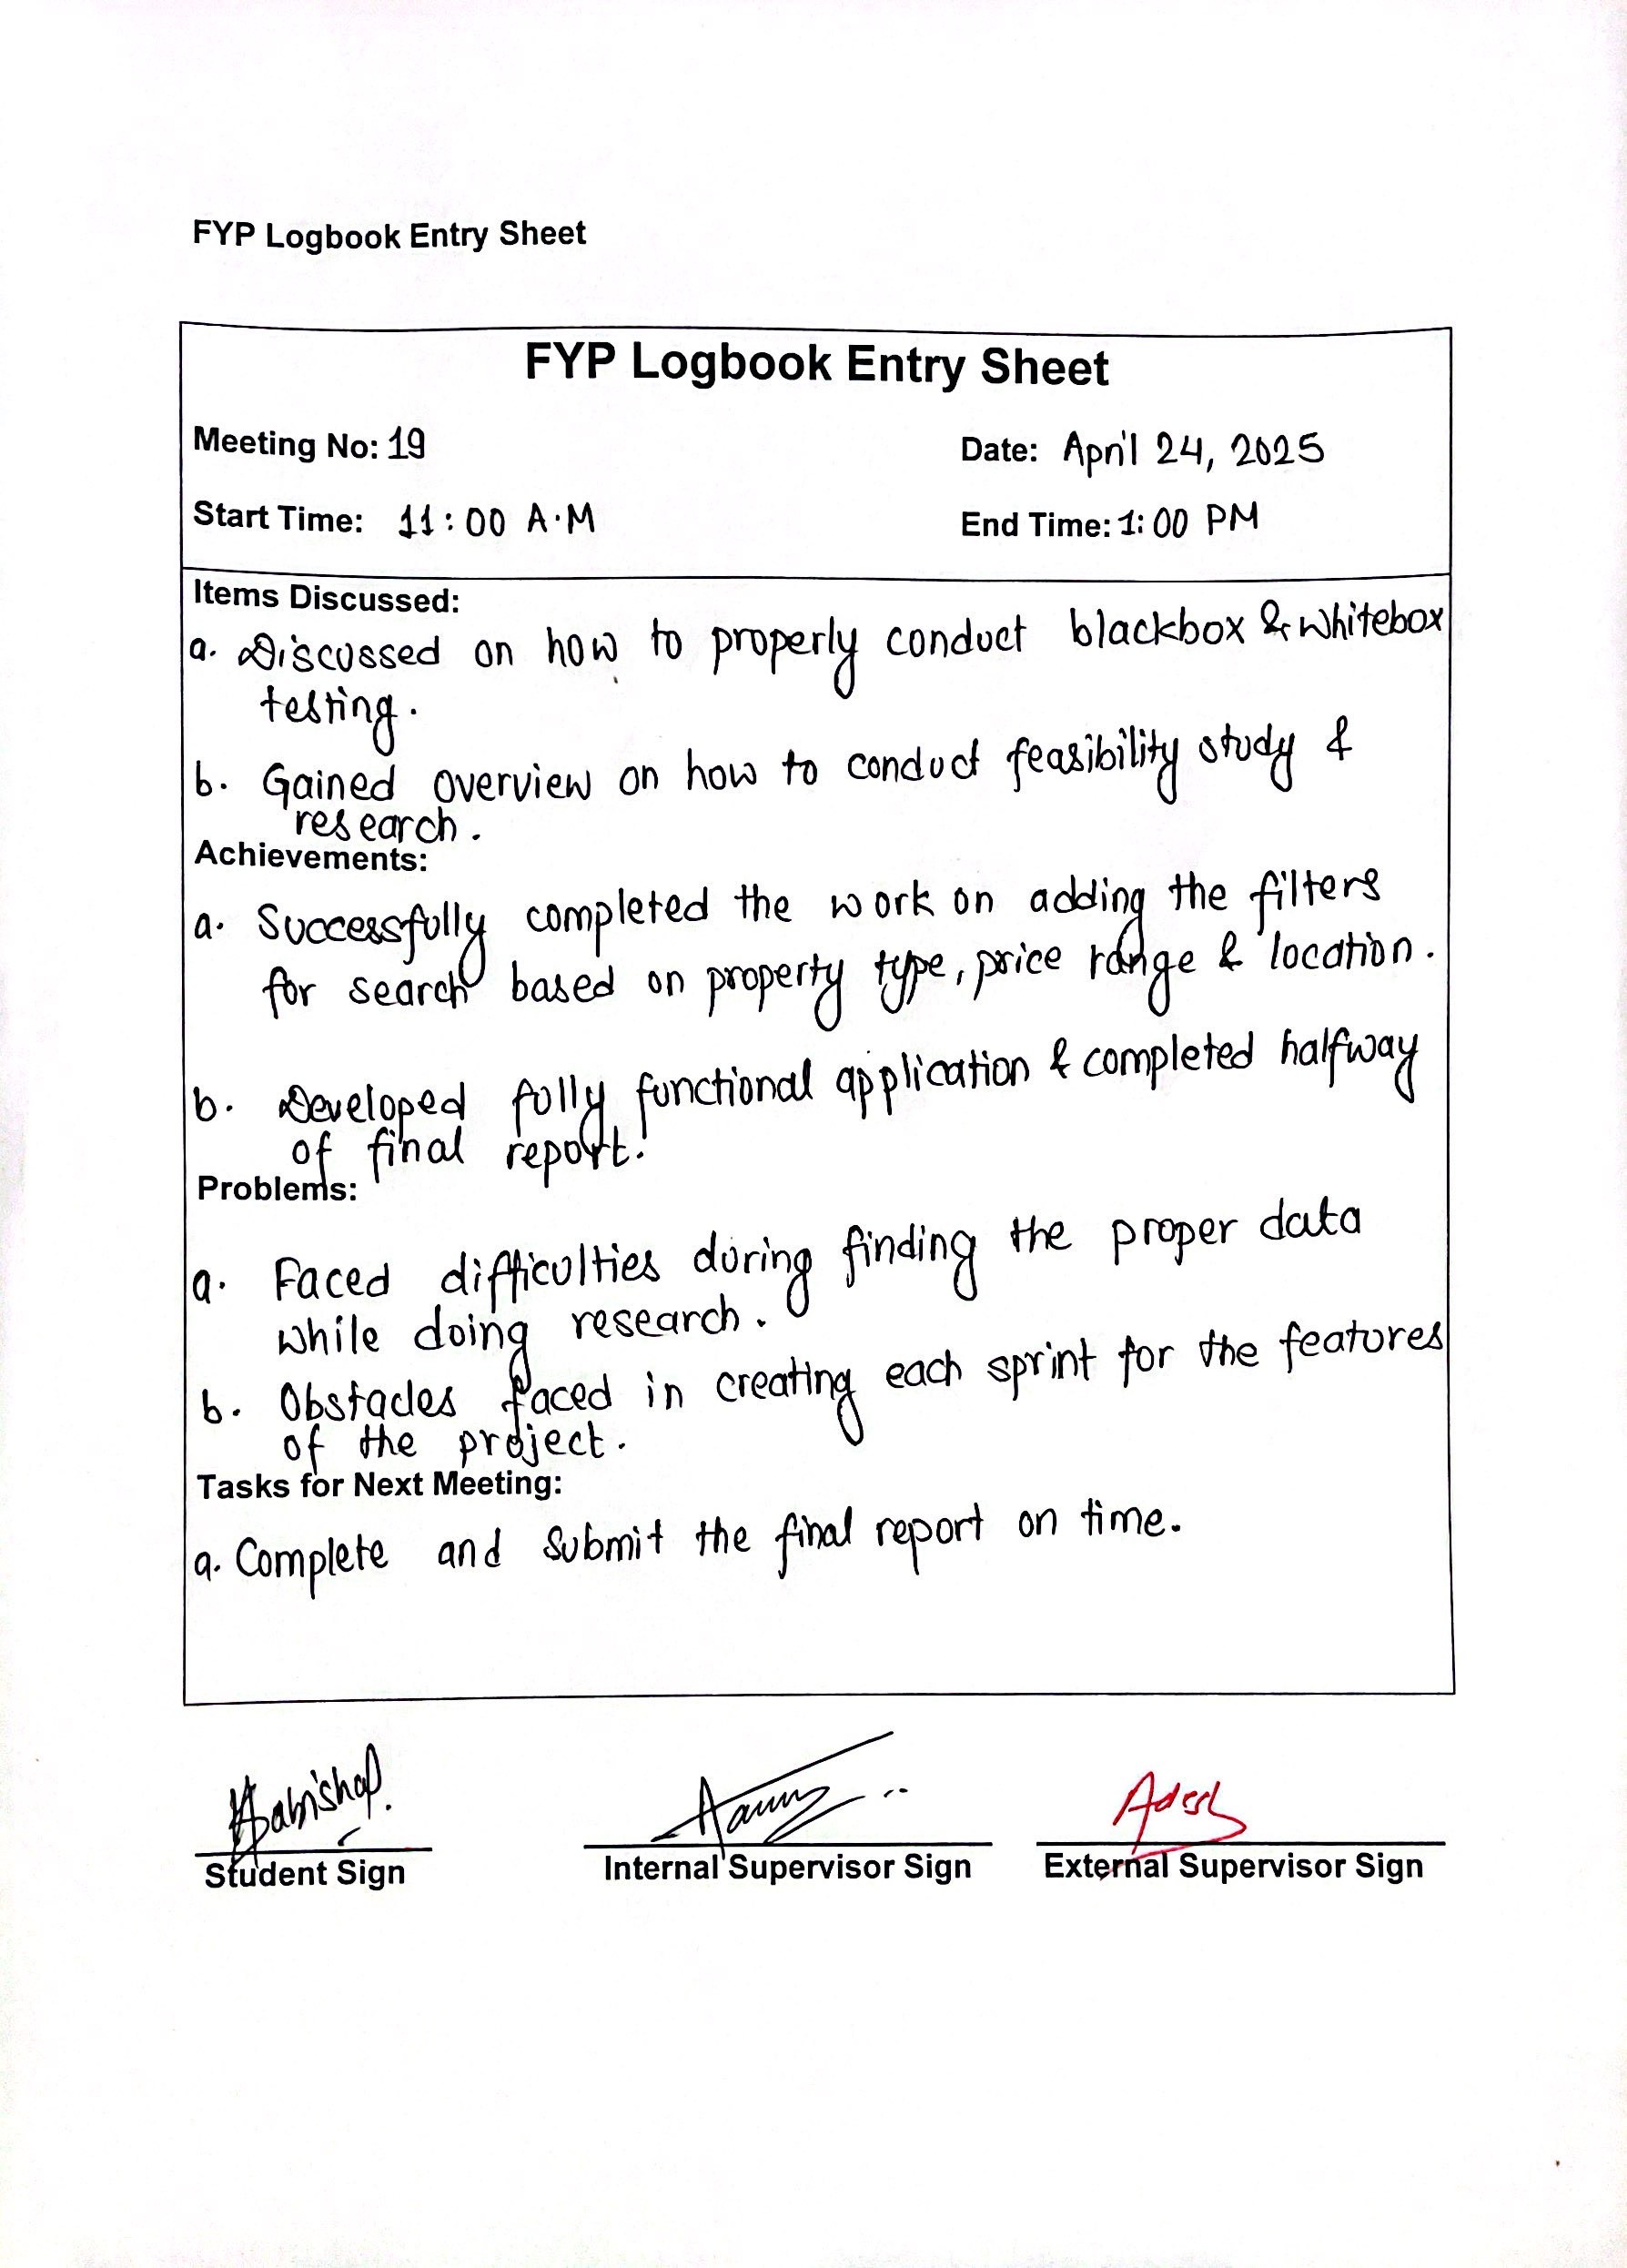 FYP Logbook Entry Sheet
FYP Logbook Entry Sheet
Meeting No: 19
Date: April 24, 2025
Start Time: 11:00 A.M
End Time: 1:00 PM
Items Discussed:
a. Discussed on how to properly conduct blackbox & whitebox
testing.
b. Gained overview on how to conduct feasibility study &
research.
Achievements:
a. Successfully completed the work on adding the filters
for search based on property type, price range & location.
b. Developed fully functional application & completed halfway
of final report.
Problems:
a. Faced difficulties during finding the proper data
while doing research.
b. Obstacles faced in creating each sprint for the features
of the project.
Tasks for Next Meeting:
a. Complete and submit the final report on time.
Student Sign
Internal Supervisor Sign
External Supervisor Sign